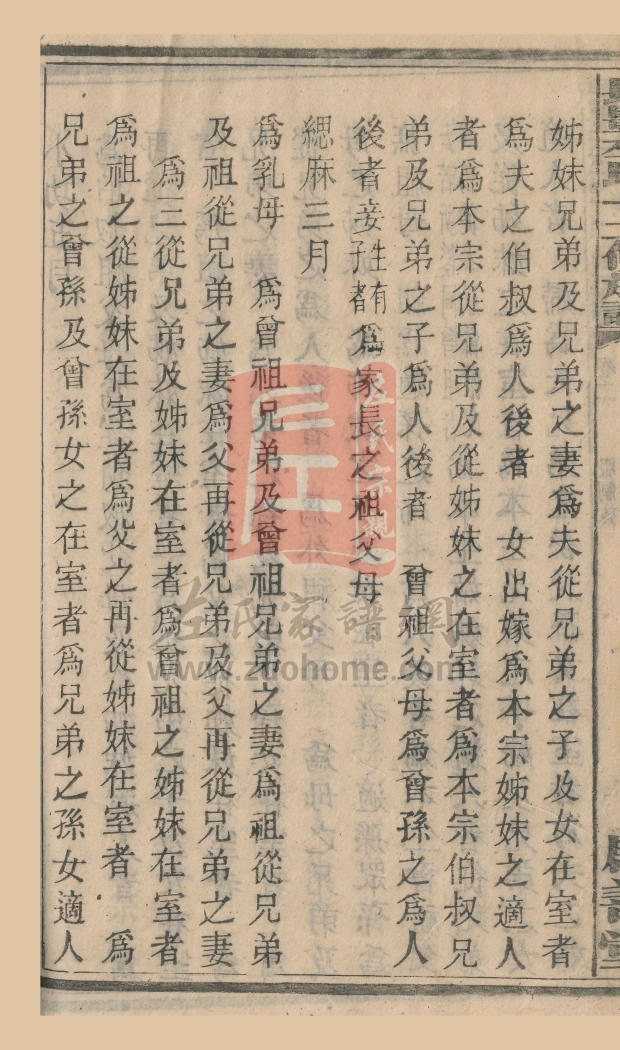 姊妹兄弟及兄弟之妻爲夫從兄弟之子及女在室者
爲夫之伯叔爲人後者 女出嫁爲本宗姊妹之適人
者爲本宗從兄弟及從姊妹之在室者爲本宗伯叔兄
弟及兄弟之子爲人後者 曾祖父母爲曾孫之爲人
後者妾生子有者爲家長之祖父母
緦麻三月
爲乳母 爲曾祖兄弟及曾祖兄弟之妻爲祖從兄弟
及祖從兄弟之妻爲父再從兄弟及父再從兄弟之妻
爲三從兄弟及姊妹在室者爲曾祖之姊妹在室者
爲祖之從姊妹在室者爲父之再從姊妹在室者 爲
兄弟之曾孫及曾孫女之在室者爲兄弟之孫女適人
左氏宗親
左氏家譜網
www.zuohome.com